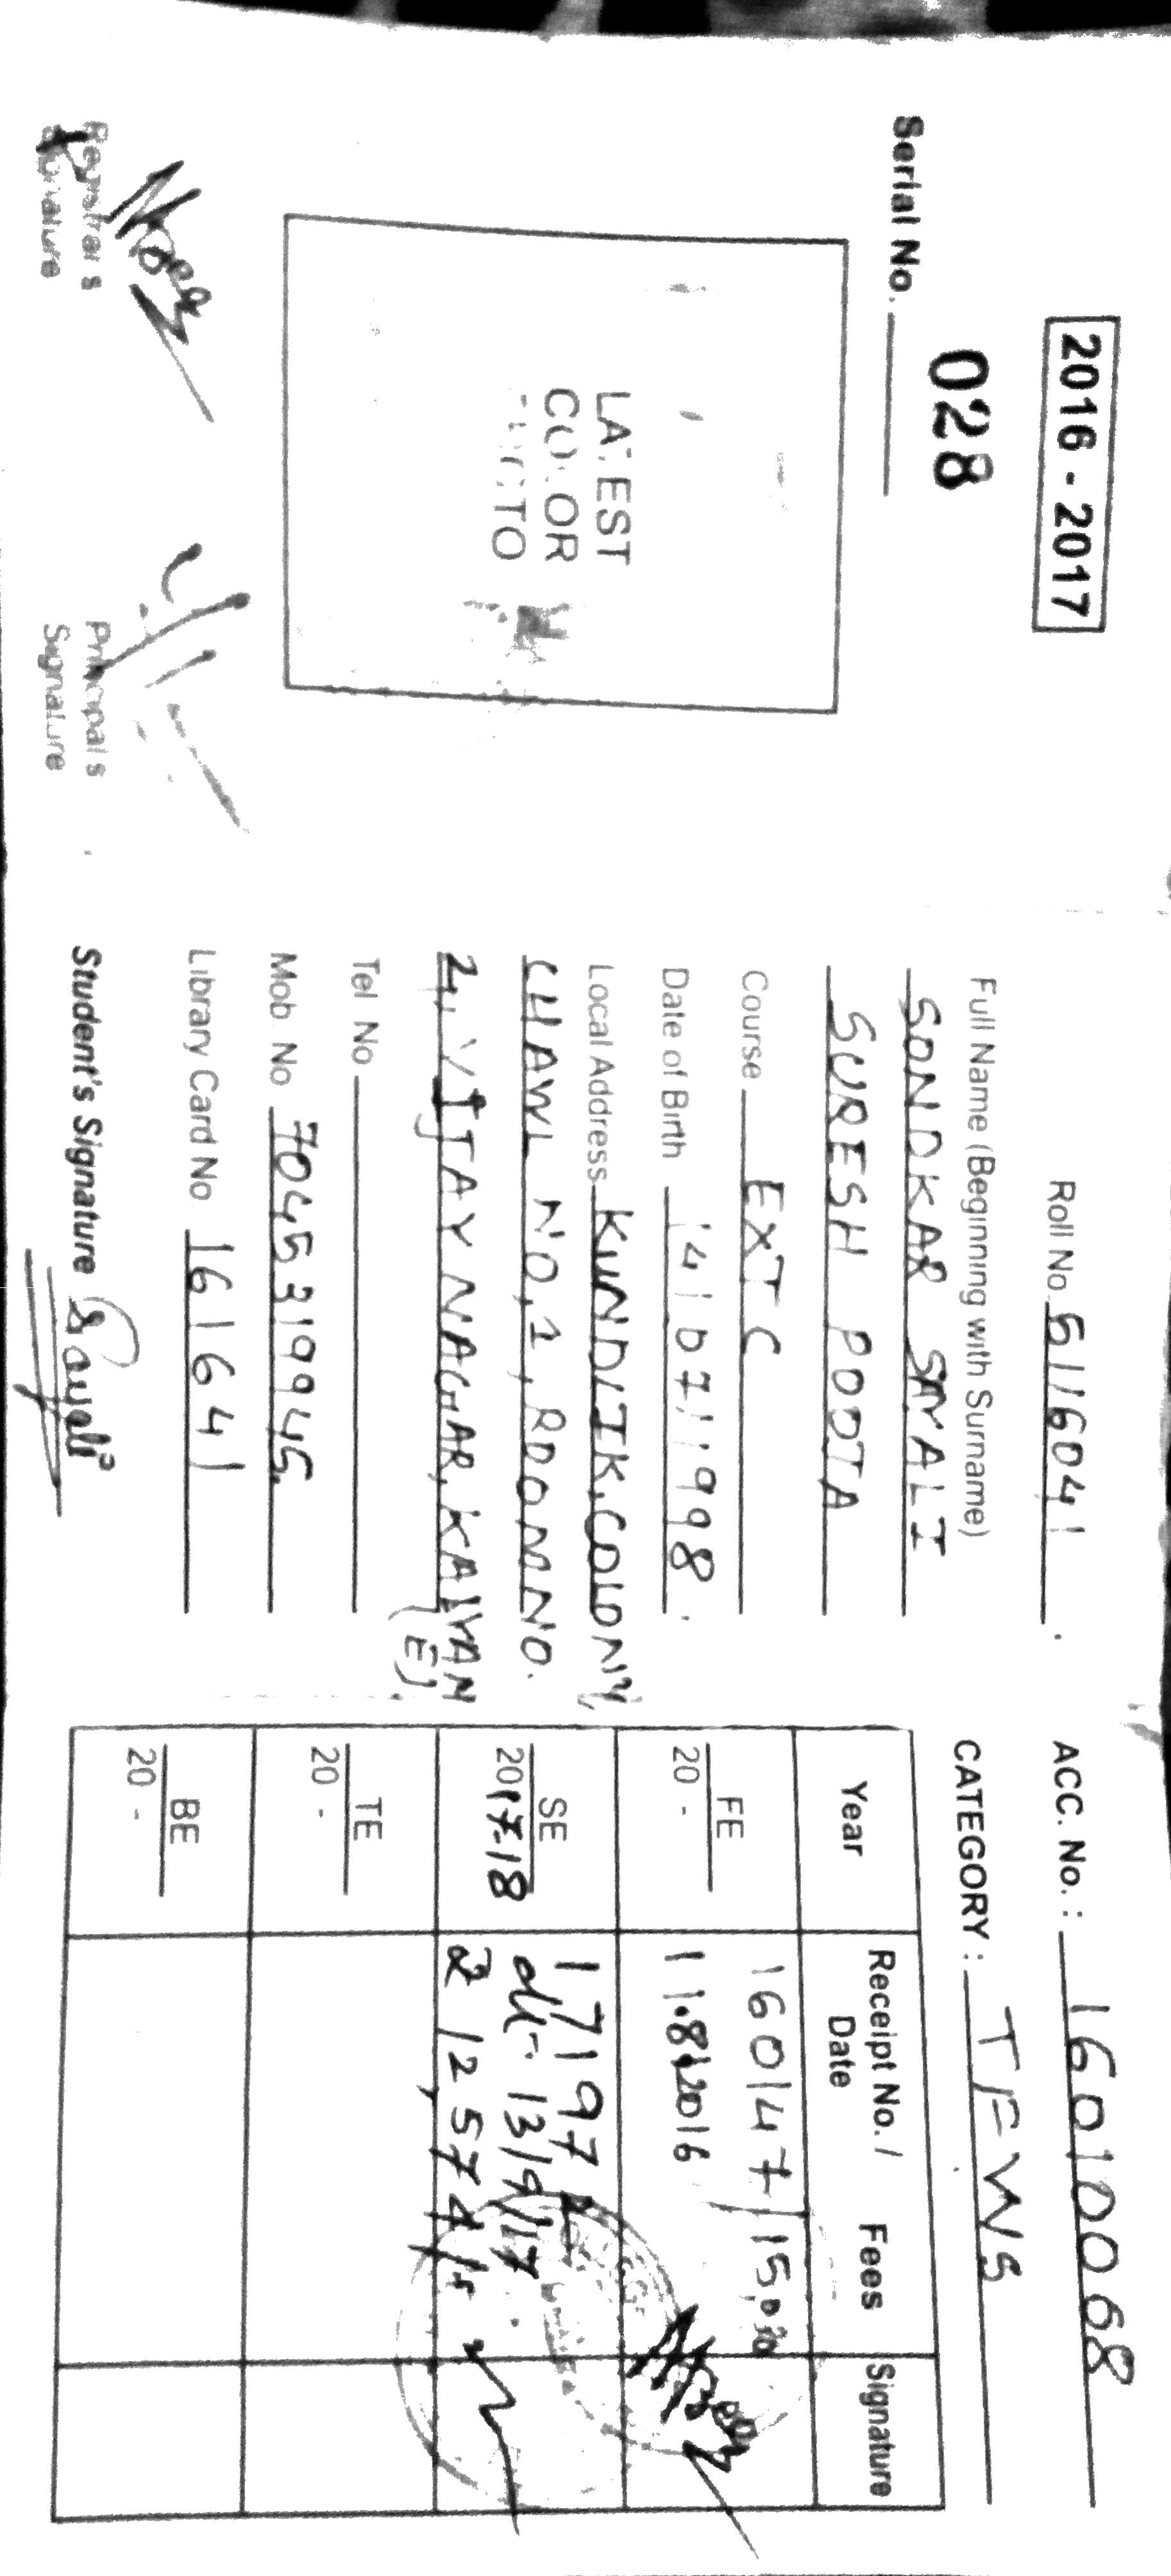 2016 - 2017
028
Serial No.
LATEST
COLOR
PHOTO
Registrar's
Signature
Principal's
Signature
Roll No 5116041
Full Name (Beginning with Surname)
SONDKAR SAYALI
SURESH POOJA
Course EXTC
Date of Birth 14/07/1998.
Local Address KUNDLIK, COLONY,
CHAWL NO, 1, ROOM NO.
2, VIJAY NAGAR, KALYAN
(E).
Tel No
Mob No 7045319945.
Library Card No 161641
Student's Signature Sayali
ACC. No. : 16010068
CATEGORY : TFWS
Year Receipt No. / Date Fees Signature
FE
20 -
160147/15,0
11.8.2016
SE
2017-18
17197
dt. 13/9/17
TE
20 -
BE
20 -